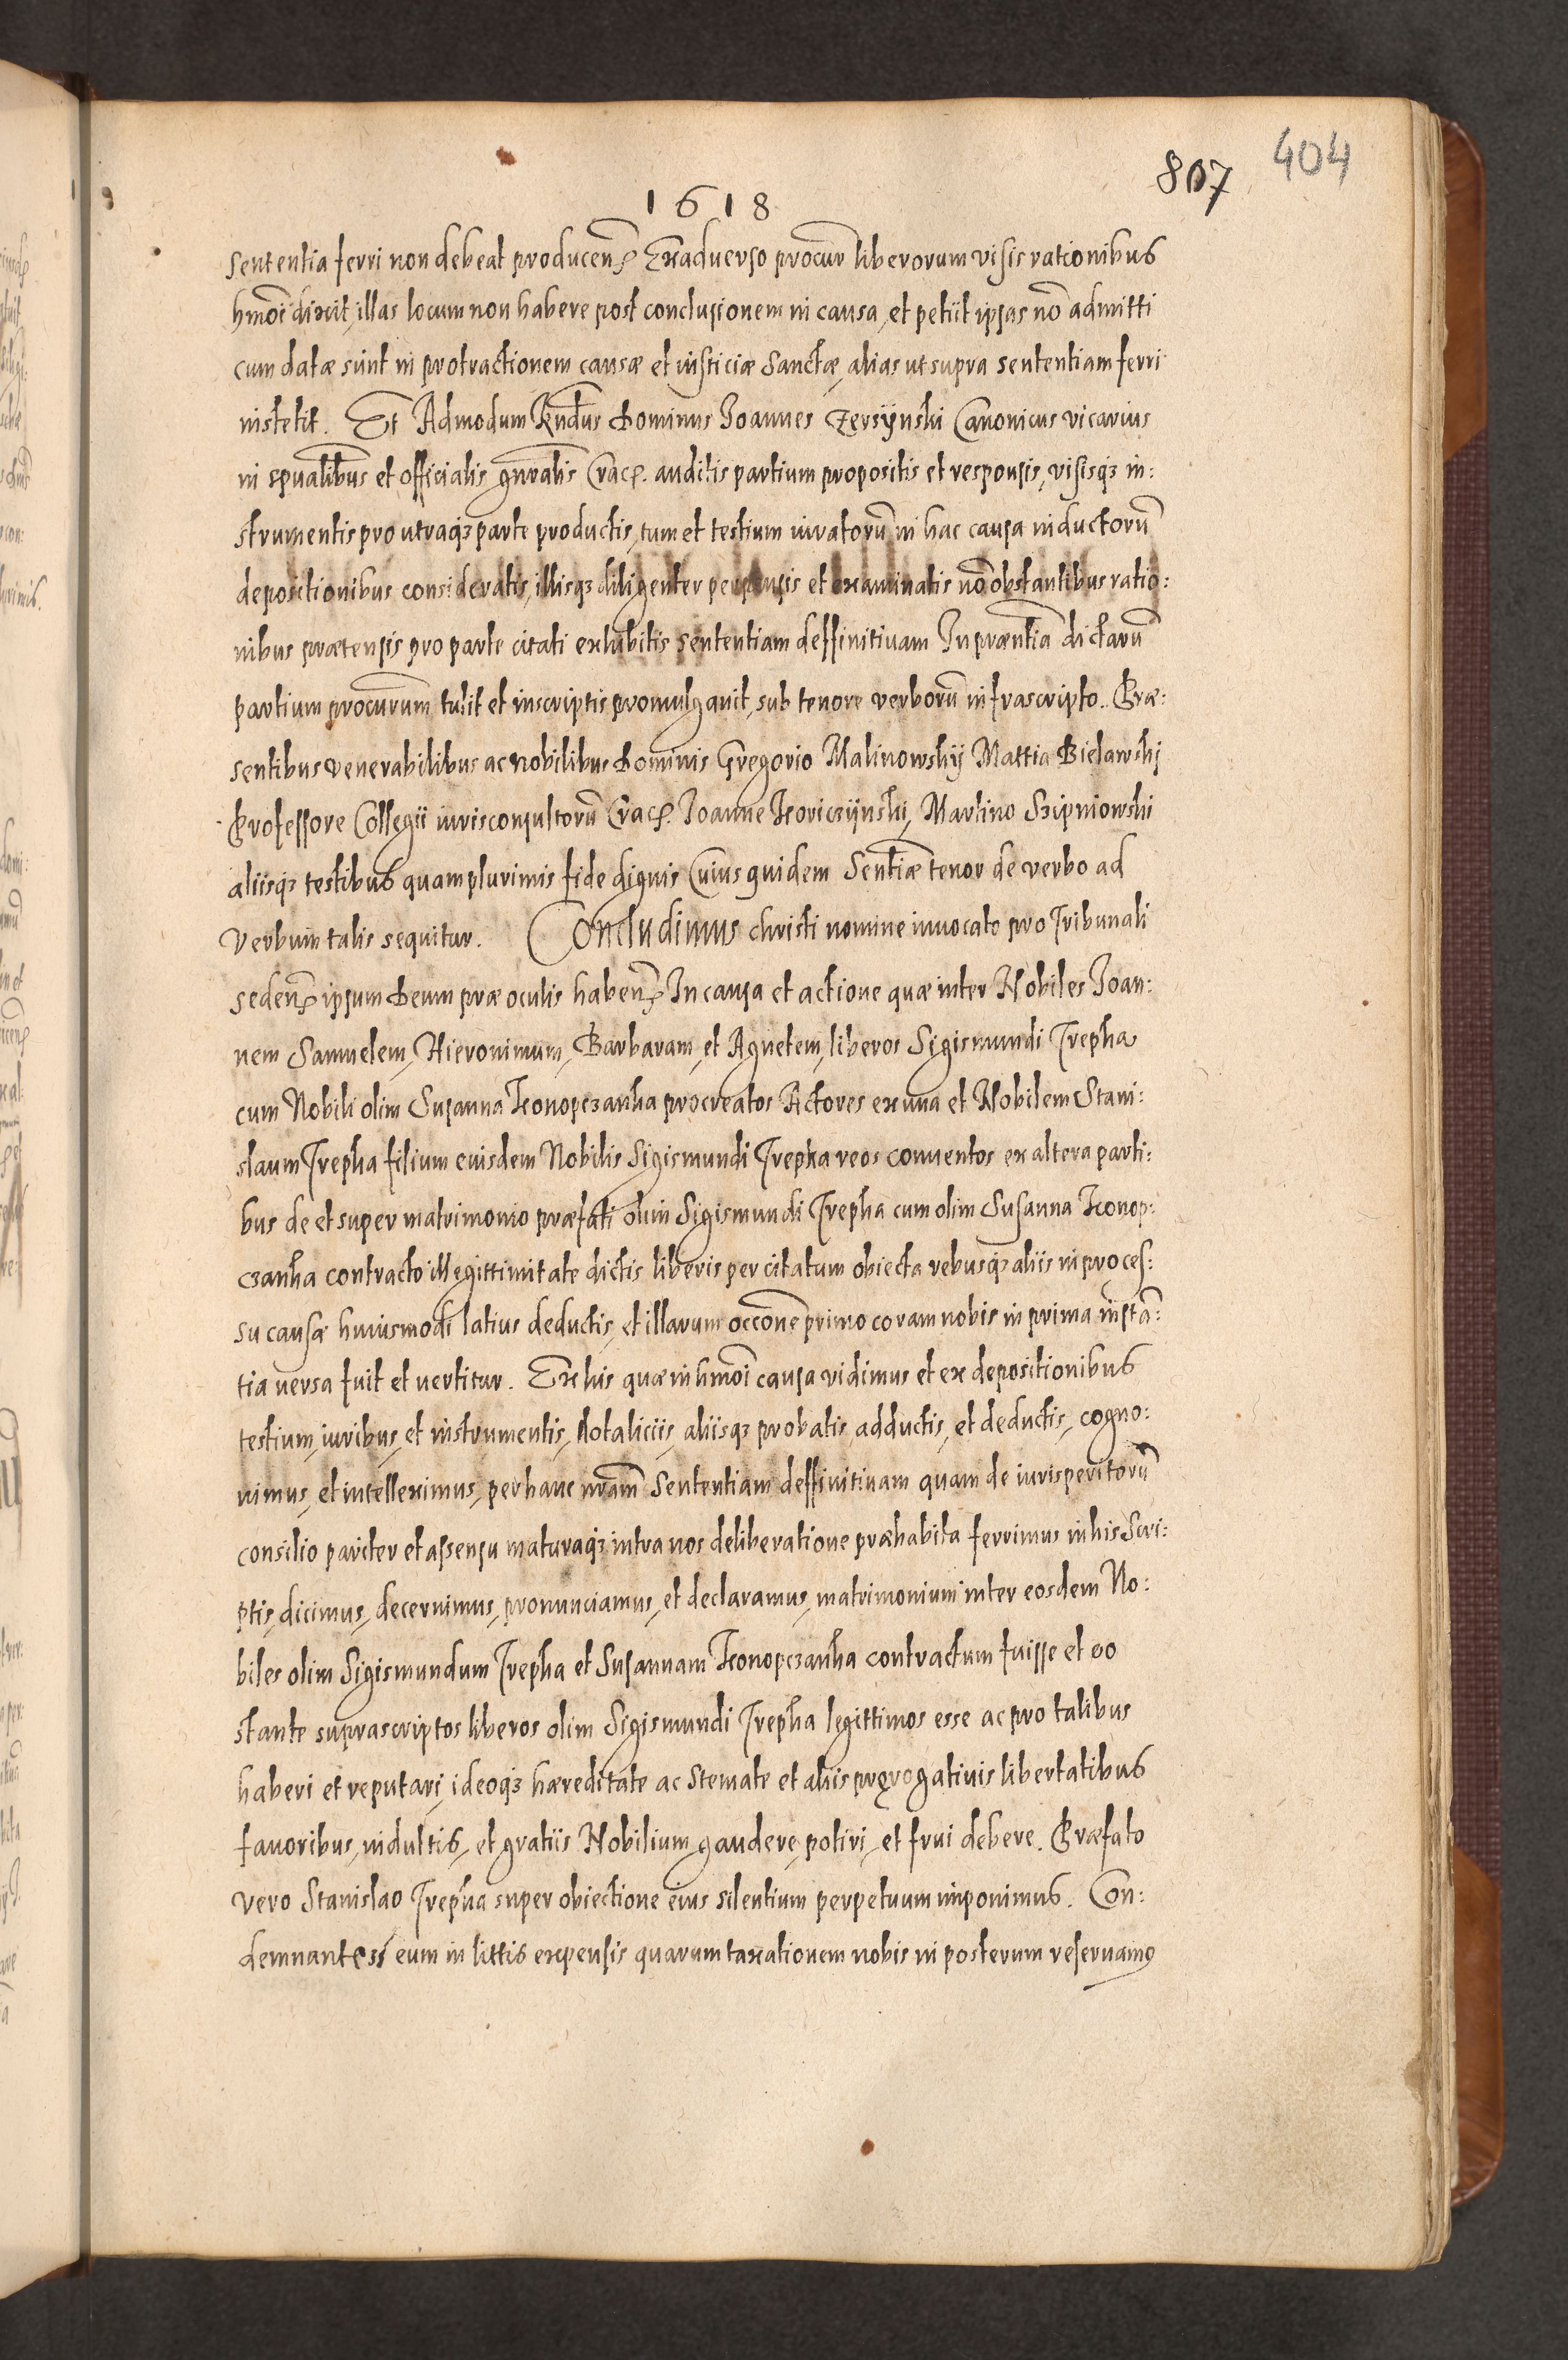 404
807
1618
sententia ferri non debeat producen Ex aduerso procur liberorum visis rationibus
hmoi dixit, illas locum non habere post conclusionem in causa, et petiit ipsas nõ admitti
cum datæ sunt in protractionem causæ et iusticiæ Sanctæ, alias ut supra sententiam ferri
institit. Et Admodum Rndus Dominus Joannes Zersÿnski Canonicus vicarius
in spualibus et officialis gnralis Crac. auditis partium propositis et responsis, visisq3 in:
strumentis pro utraq3 parte productis, tum et testium iuratorũ in hac causa inductorũ
depositionibus consideratis, illisq3 diligenter perpensis et examinatis nõ obstantibus ratio:
nibus prætensis pro parte citati exhibitis sententiam deffinitiuam In præntia dictarũ
partium procurum tulit et in scriptis promulgauit, sub tenore verborũ infrascripto. Præ:
sentibus venerabilibus ac nobilibus Dominis Gregorio Malinowskÿ Mattia Bielawskj
Professore Collegii iurisconsultorũ Crac Joanne Koriczÿnski, Martino Szipniowski
aliisq3 testibus quamplurimis fide dignis Cuius quidem Sentiæ tenor de verbo ad
verbum talis sequitur. Concludimus christi nomine inuocato pro Tribunali
seden ipsum Deum præ oculis haben In causa et actione quæ inter Nobiles Joan:
nem Samuelem, Hieronimum, Barbaram, et Agnetem, liberos Sigismundi Trepka
cum Nobili olim Susanna Konopczanka procreatos Actores ex una et Nobilem Stani:
slaum Trepka filium eiusdem Nobilis Sigismundi Trepka reos conuentos ex altera parti:
bus de et super matrimonio præfati olim Sigismundi Trepka cum olim Susanna Konop:
czanka contracto illegittimitate dictis liberis per citatum obiecta rebusq3 aliis in proces:
su causæ huiusmodi latius deductis, et illarum occõne primo coram nobis in prima instã:
tia uersa fuit et uertitur. Ex his quæ in hmoi causa vidimus et ex depositionibus
testium, iuribus, et instrumentis, Rotaliciis, aliisq3 probatis adductis, et deductis, cogno:
uimus, et intelleximus, per hanc nram Sententiam deffinitiuam quam de iurisperitorũ
consilio pariter et assensu maturaq3 intra nos deliberatione præhabita ferrimus in his Scri:
ptis, dicimus, decernimus, pronunciamus, et declaramus, matrimonium inter eosdem No:
biles olim Sigismundum Trepka et Susannam Konopczanka contractum fuisse et eo
stante suprascriptos liberos olim Sigismundi Trepka legittimos esse ac pro talibus
haberi et reputari, ideoq3 hæreditate ac Stemate et aliis pręrogatiuis libertatibus
fauoribus, indultis, et gratiis Nobilium gaudere, potiri, et frui debere. Præfato
vero Stanislao Trepka super obiectione eius silentium perpetuum imponimus. Con:
demnantes eum in littis expensis quarum taxationem nobis in posterum reseruamq